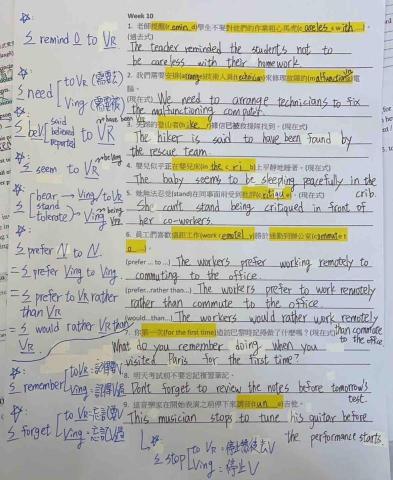 Week 10
1. 老師提醒(r emin d)學生不要對他們的作業粗心馬虎(c areles s with ...)
(過去式)
The teacher reminded the students not to
be careless with their homework.
2. 我們需要安排(arrange)技術人員來修理故障的(malfunction)電
腦。
(現在式) We need to arrange technicians to fix
the malfunctioning computer.
(現在式)
The hiker is said to have been found by
the rescue team.
4. 嬰兒似乎正在嬰兒床(in the c r i b)上平靜地睡著。(現在式)
The baby seems to be sleeping peacefully in the
crib.
5. 她無法忍受(stand)在同事面前受到批評(critique)。(現在式)
She can't stand being critiqued in front of
her co-workers.
6. 員工們喜歡遠距工作(work remotely)勝於通勤到辦公室(commute t
o ...)。
(prefer ... to ...) The workers prefer working remotely to
commuting to the office.
(prefer...rather than...) The workers prefer to work remotely
rather than commute to the office.
(would...than...) The workers would rather work remotely
than commute
to the office.
7. 你第一次(for the first time)造訪巴黎時記得做了什麼嗎？(現在式)
What do you remember doing when you
visited Paris for the first time?
8. 明天考試前不要忘記複習筆記。
Don't forget to review the notes before tomorrow's
test.
9. 這音樂家在開始表演之前停下來調音(tun e)吉他。
This musician stops to tune his guitar before
the performance starts.
S remind O to VR
S need to VR (需要去)
Ving (需要被)
S beV said to VR
believed
reported
to have been
S seem to VR
S bear Ving/to VR
stand Ving
tolerate Ving
being
S prefer N to N.
S prefer Ving to Ving
S prefer to VR rather
than VR
S would rather VR than
VR
S remember to VR: 記得去V
Ving: 記得V過
S forget to VR: 忘記去V
Ving: 忘記V過
S stop to VR = 停止某事去V
Ving = 停止V